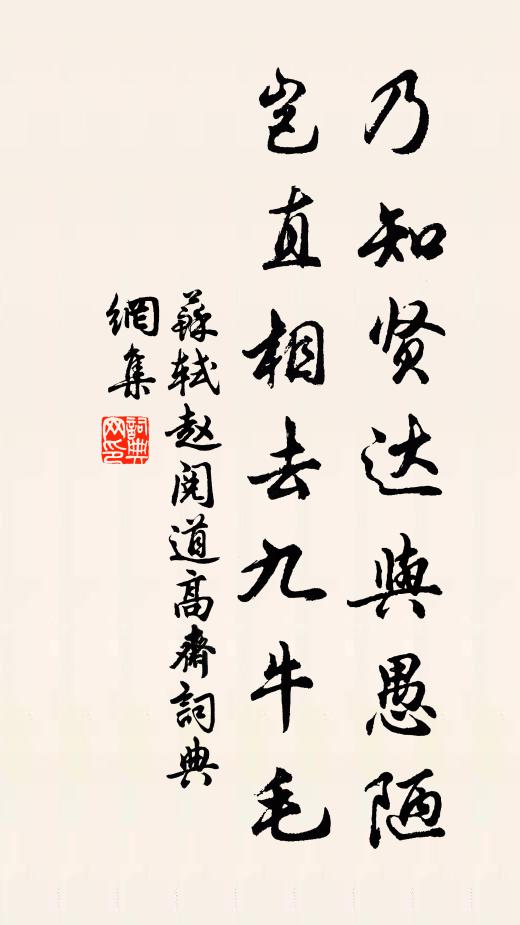 乃知贤达與愚陋
岂直相去九牛毛
蘇轼赵阅道高齋詞典
網集
詞典网印